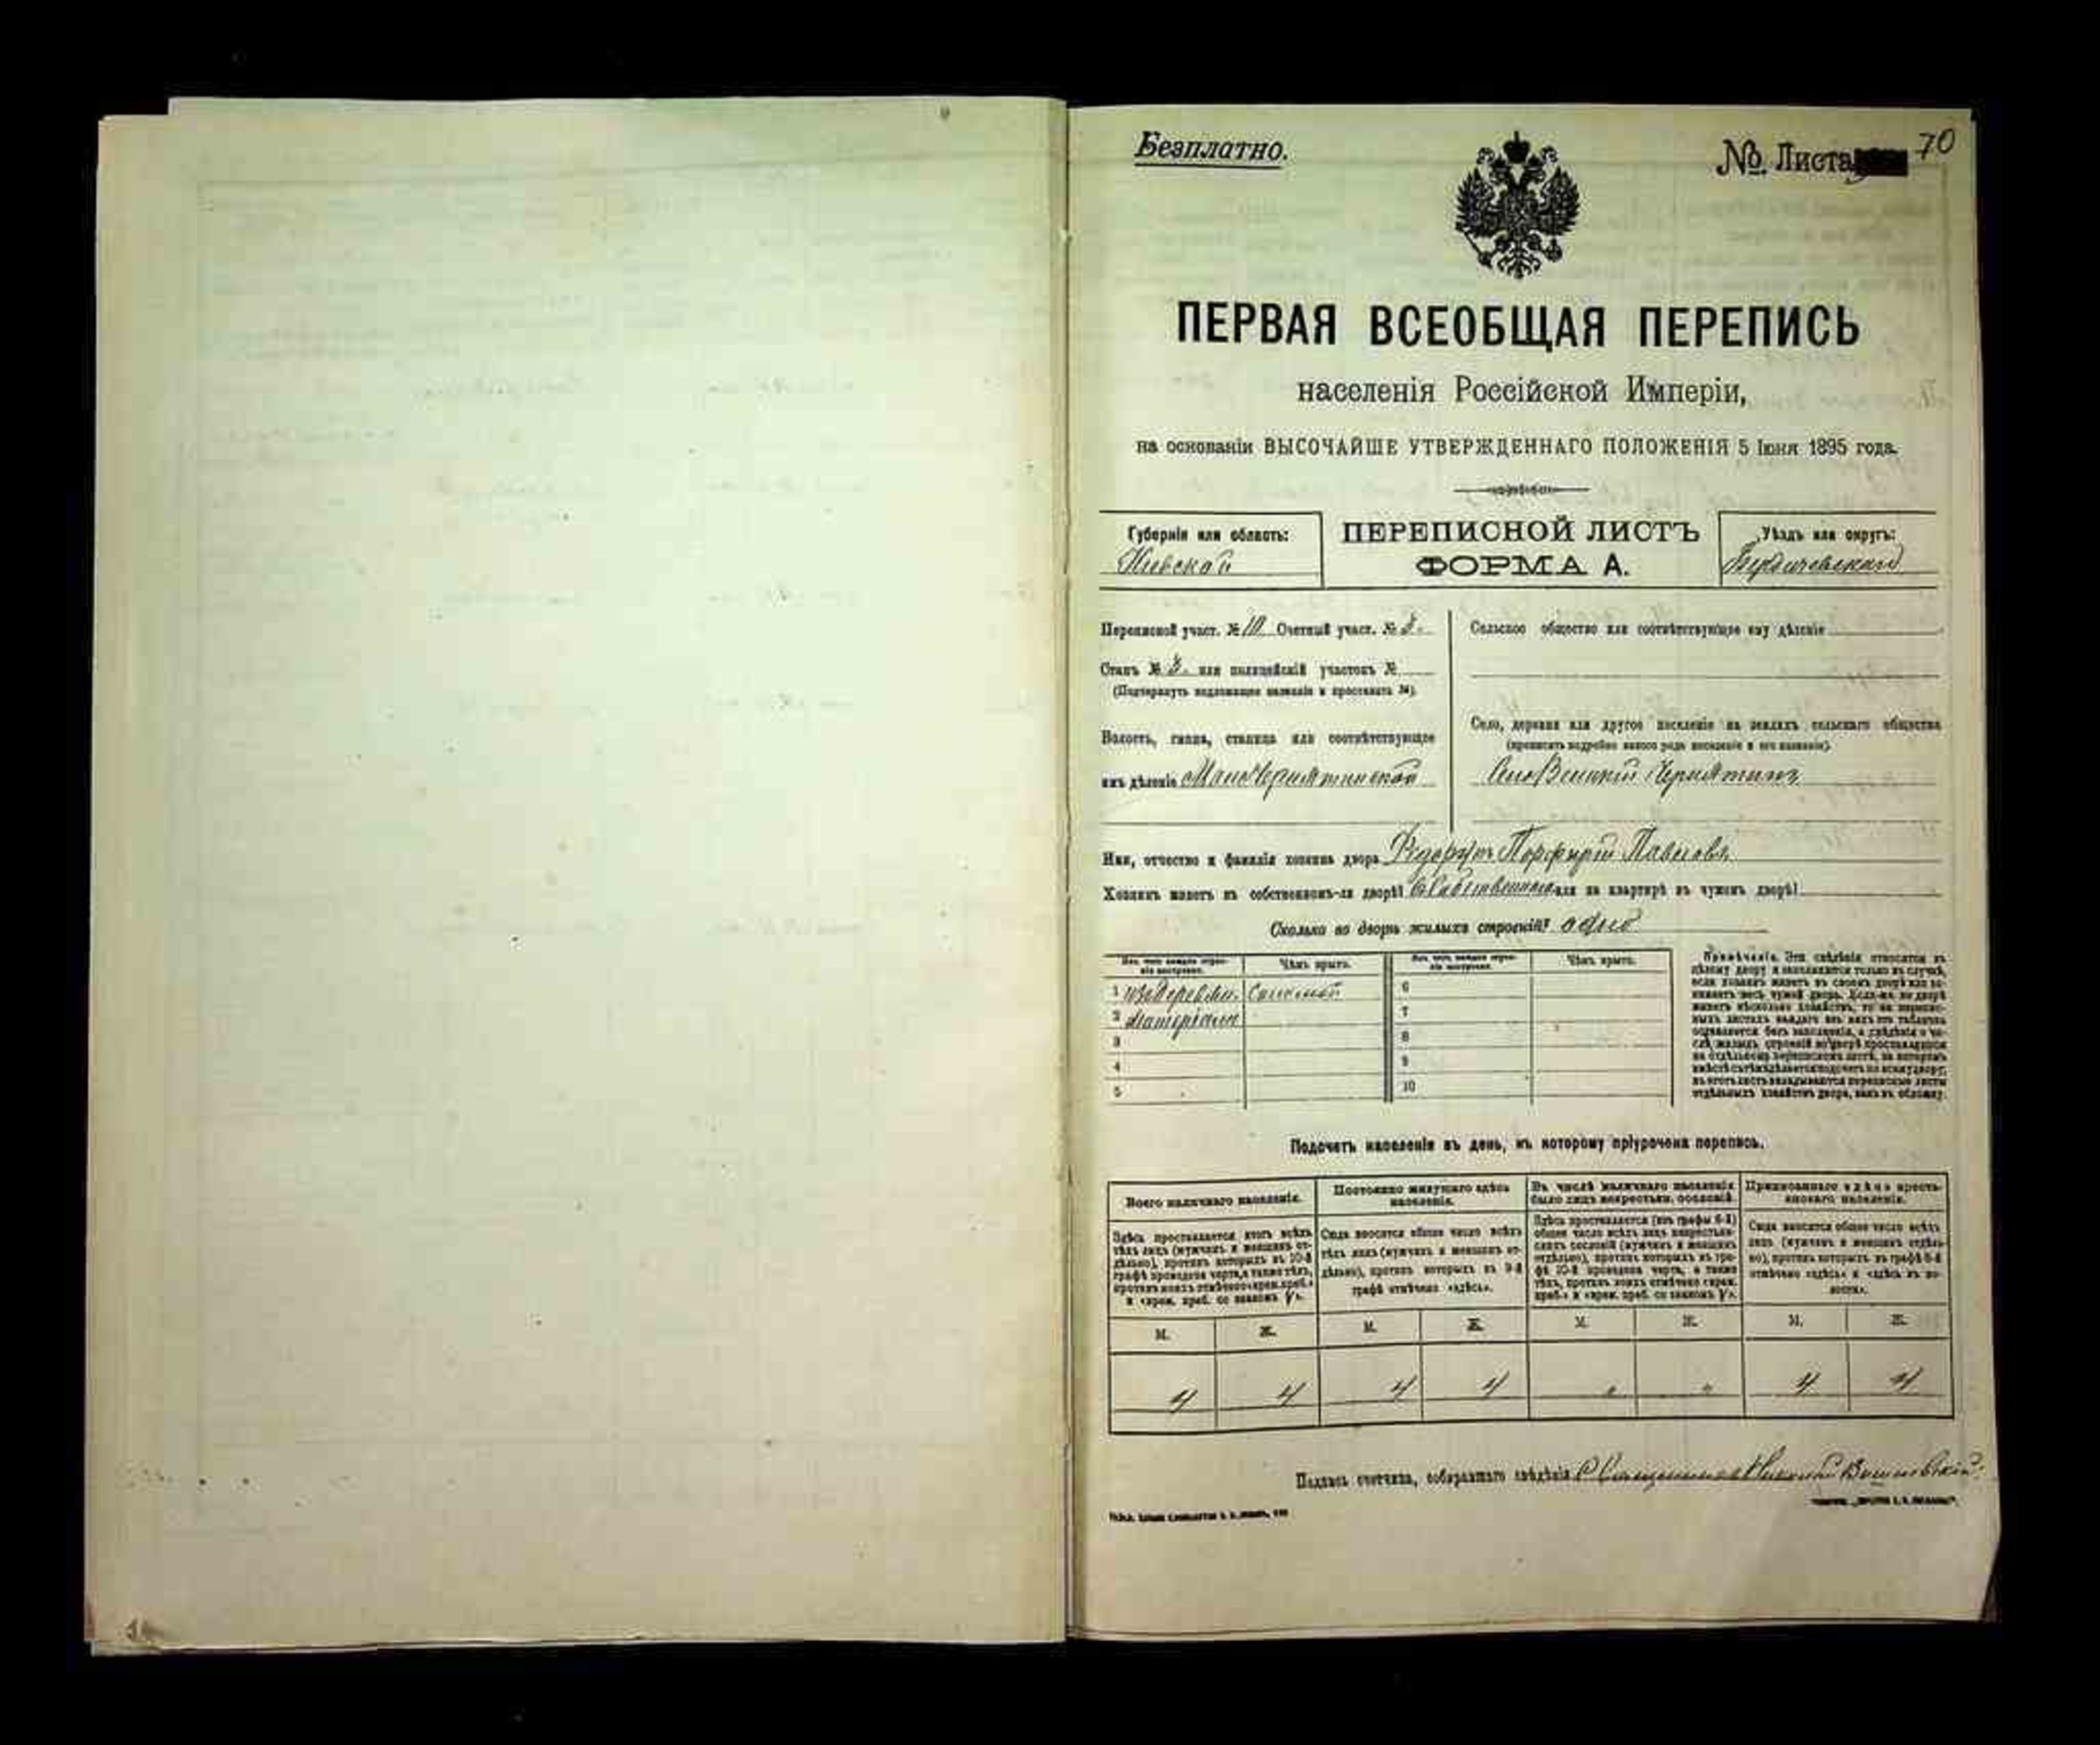 Безплатно.
№ Листа 70
ПЕРВАЯ ВСЕОБЩАЯ ПЕРЕПИСЬ
населенія Россійской Имперіи,
на основаніи ВЫСОЧАЙШЕ УТВЕРЖДЕННАГО ПОЛОЖЕНІЯ 5 Іюня 1895 года.
Губернія или область:
Кіевской
ПЕРЕПИСНОЙ ЛИСТЪ
ФОРМА А.
Уѣздъ или округъ:
Бердичевскаго
Переписной участ. № 10 Счетный участ. № 8.
Станъ № 3. или полицейскій участокъ №
(Подчеркнуть надлежащее названіе и проставить №).
Волость, гмина, станица или соотвѣтствующее
имъ дѣленіе Мало Чернятинской
Сельское общество или соотвѣтствующее ему дѣленіе
Село, деревня или другое поселеніе на земляхъ сельскаго общества
(прописать подробно какого рода поселеніе и его названіе).
Село Великій Чернятинъ
Имя, отчество и фамилія хозяина двора Порфирій Павловъ
Хозяинъ живетъ въ собственномъ-ли дворѣ? въ собственномъ или на квартирѣ въ чужомъ дворѣ?
Сколько во дворѣ жилыхъ строеній? одно
Изъ чего каждое строеніе построено.
Чѣмъ крыто.
Изъ чего каждое строеніе построено.
Чѣмъ крыто.
1 изъ деревян. Соломой 6
2 матеріала 7
3 8
4 9
5 10
Примѣчаніе. Эти свѣдѣнія относятся къ
цѣлому двору и заполняются только въ случаѣ,
если хозяинъ живетъ въ своемъ дворѣ или за-
нимаетъ весь чужой дворъ. Если-же во дворѣ
живетъ нѣсколько хозяйствъ, то на перепис-
ныхъ листахъ каждаго изъ нихъ эта табличка
оставляется безъ заполненія, а свѣдѣнія о чи-
слѣ жилыхъ строеній во дворѣ проставляются
на отдѣльномъ переписномъ листѣ, на которомъ
вмѣстѣ съ тѣмъ дѣлается подсчетъ по всему двору;
въ этотъ листъ вкладываются переписные листы
отдѣльныхъ хозяйствъ двора, какъ въ обложку.
Подсчетъ населенія въ день, къ которому пріурочена перепись.
Всего наличнаго населенія.
Здѣсь проставляется итогъ всѣхъ
тѣхъ лицъ (мужчинъ и женщинъ от-
дѣльно), противъ которыхъ въ 10-й
графѣ проведена черта, а также тѣхъ,
противъ коихъ отмѣчено «врем. преб.»
и «врем. преб. со знакомъ V».
Постоянно живущаго здѣсь
населенія.
Сюда вносится общее число всѣхъ
тѣхъ лицъ (мужчинъ и женщинъ от-
дѣльно), противъ которыхъ въ 9-й
графѣ отмѣчено «здѣсь».
Въ числѣ наличнаго населенія
было лицъ некрестьян. сословій.
Здѣсь проставляется (изъ графы 6-й)
общее число всѣхъ лицъ некрестьян-
скихъ сословій (мужчинъ и женщинъ
отдѣльно), противъ которыхъ въ гра-
фѣ 10-й проведена черта, а также
тѣхъ, противъ коихъ отмѣчено «врем.
преб.» и «врем. преб. со знакомъ V».
Приписаннаго здѣсь кресть-
янскаго населенія.
Сюда вносится общее число всѣхъ
лицъ (мужчинъ и женщинъ отдѣль-
но), противъ которыхъ въ графѣ 8-й
отмѣчено «здѣсь» и «здѣсь въ во-
лости».
М. Ж. М. Ж. М. Ж. М. Ж.
4 4 4 4 " " 4 4
Подпись счетчика, собиравшаго свѣдѣнія Священникъ Николай